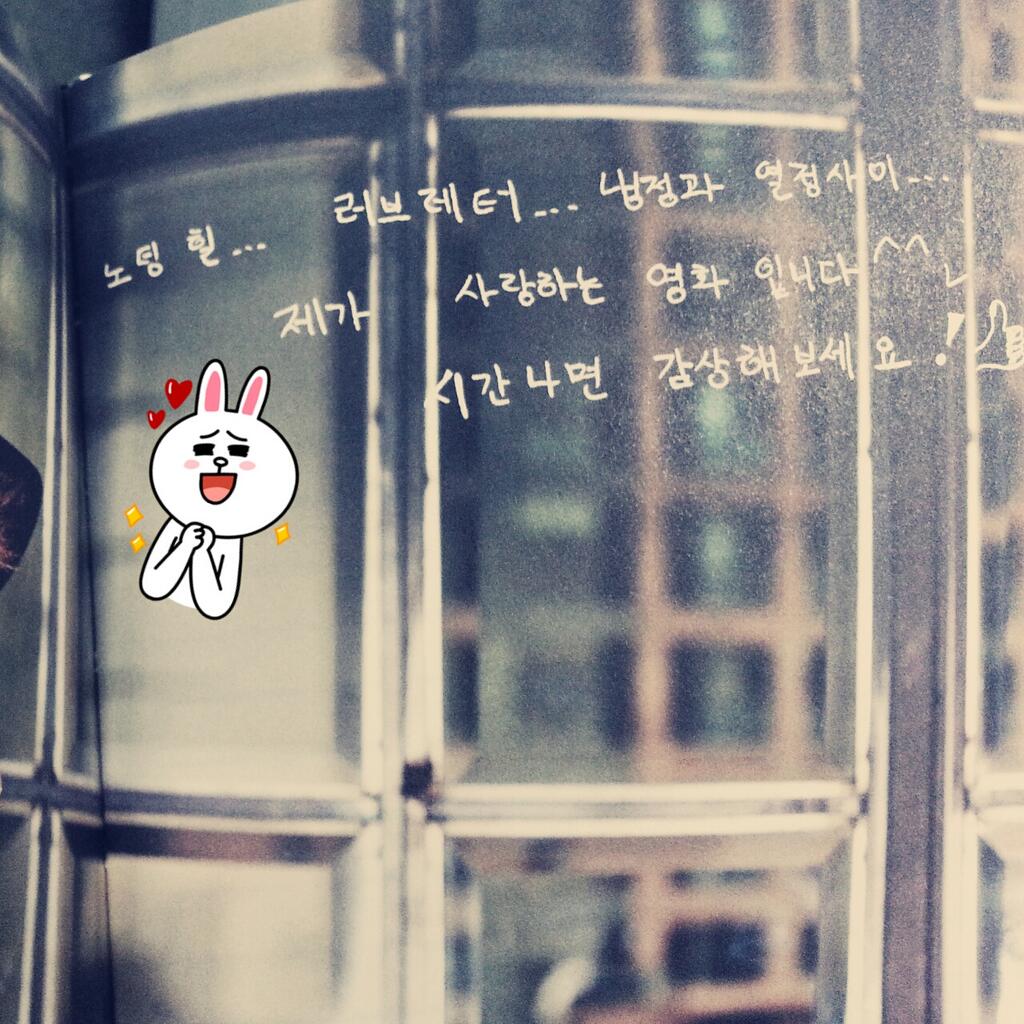 노팅 힐... 러브레터... 냉정과 열정사이...
제가 사랑하는 영화 입니다^^
시간나면 감상해보세요!